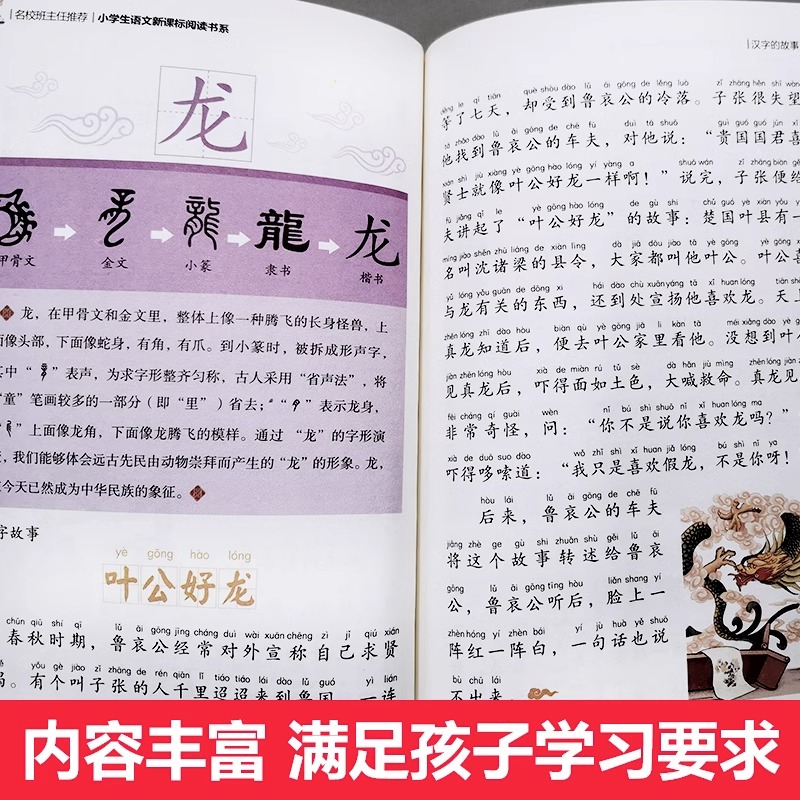 名校班主任推荐 | 小学生语文新课标阅读书系
龙
甲骨文 金文 小篆 隶书 楷书
龍 龙
龙，在甲骨文和金文里，整体上像一种腾飞的长身怪兽，上
面像头部，下面像蛇身，有角，有爪。到小篆时，被拆成形声字，
其中“ ”表声，为求字形整齐匀称，古人采用“省声法”，将
“童”笔画较多的一部分（即“里”）省去；“ ”表示龙身，
“ ”上面像龙角，下面像龙腾飞的模样。通过“龙”的字形演
，我们能够体会远古先民由动物崇拜而产生的“龙”的形象。龙，
今天已然成为中华民族的象征。
字故事
yè gōng hào lóng
叶公好龙
chūn qiū shí qī lǔ āi gōng jīng cháng duì wài xuān chēng zì jǐ qiú xián
春秋时期，鲁哀公经常对外宣称自己求贤
yǒu gè jiào zǐ zhāng de rén qiān lǐ tiáo tiáo lái dào lǔ guó yì lián
有个叫子张的人千里迢迢来到鲁国，一连
汉字的故事
děng le qī tiān què shòu dào lǔ āi gōng de lěng luò zǐ zhāng hěn shī wàng
等了七天，却受到鲁哀公的冷落。子张很失望
tā zhǎo dào lǔ āi gōng de chē fū duì tā shuō guì guó guó jūn xǐ
他找到鲁哀公的车夫，对他说：“贵国国君喜
xián shì jiù xiàng yè gōng hào lóng yí yàng a shuō wán zǐ zhāng biàn gěi
贤士就像叶公好龙一样啊！”说完，子张便给
fū jiǎng qǐ le yè gōng hào lóng de gù shi chǔ guó yè xiàn yǒu yí
夫讲起了“叶公好龙”的故事：楚国叶县有一
míng jiào shěn zhū liáng de xiàn lìng dà jiā dōu jiào tā yè gōng yè gōng xǐ
名叫沈诸梁的县令，大家都叫他叶公。叶公喜
yǔ lóng yǒu guān de dōng xi hái dào chù xuān yáng tā xǐ huan lóng tiān shàng
与龙有关的东西，还到处宣扬他喜欢龙。天上
zhēn lóng zhī dào hòu biàn qù yè gōng jiā li kàn tā méi xiǎng dào yè
真龙知道后，便去叶公家里看他。没想到叶
jiàn zhēn lóng hòu xià de miàn rú tǔ sè dà hǎn jiù mìng zhēn lóng jiàn
见真龙后，吓得面如土色，大喊救命。真龙见
fēi cháng qí guài wèn nǐ bú shì shuō nǐ xǐ huan lóng ma
非常奇怪，问：“你不是说你喜欢龙吗？”
xià de duō suo dào wǒ zhǐ shì xǐ huan jiǎ lóng bú shì nǐ ya
吓得哆嗦道：“我只是喜欢假龙，不是你呀！
hòu lái lǔ āi gōng de chē fū
后来，鲁哀公的车夫
jiāng zhè ge gù shi zhuǎn shù gěi lǔ āi
将这个故事转述给鲁哀
gōng lǔ āi gōng tīng hòu liǎn shang yí
公，鲁哀公听后，脸上一
zhèn hóng yí zhèn bái yí jù huà yě shuō
阵红一阵白，一句话也说
bù chū lái
不出来。
内容丰富 满足孩子学习要求